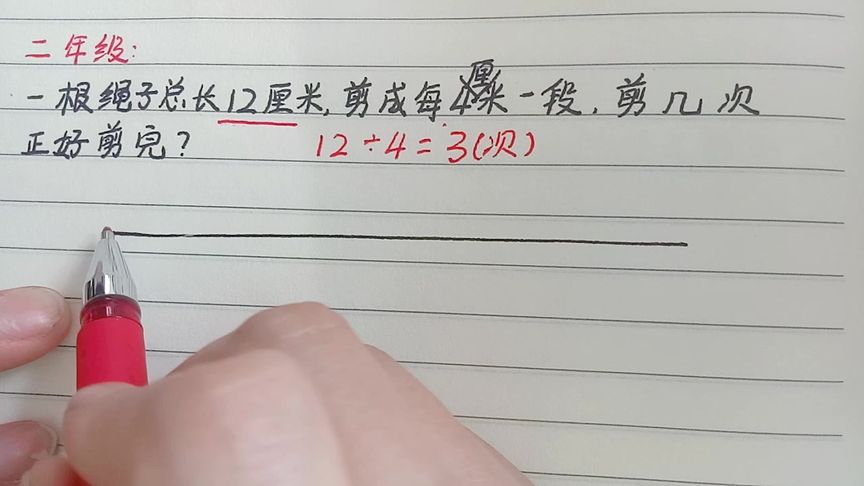 二年级:
一根绳子总长12厘米,剪成每4厘米一段,剪几次
正好剪完?
12÷4=3(次)